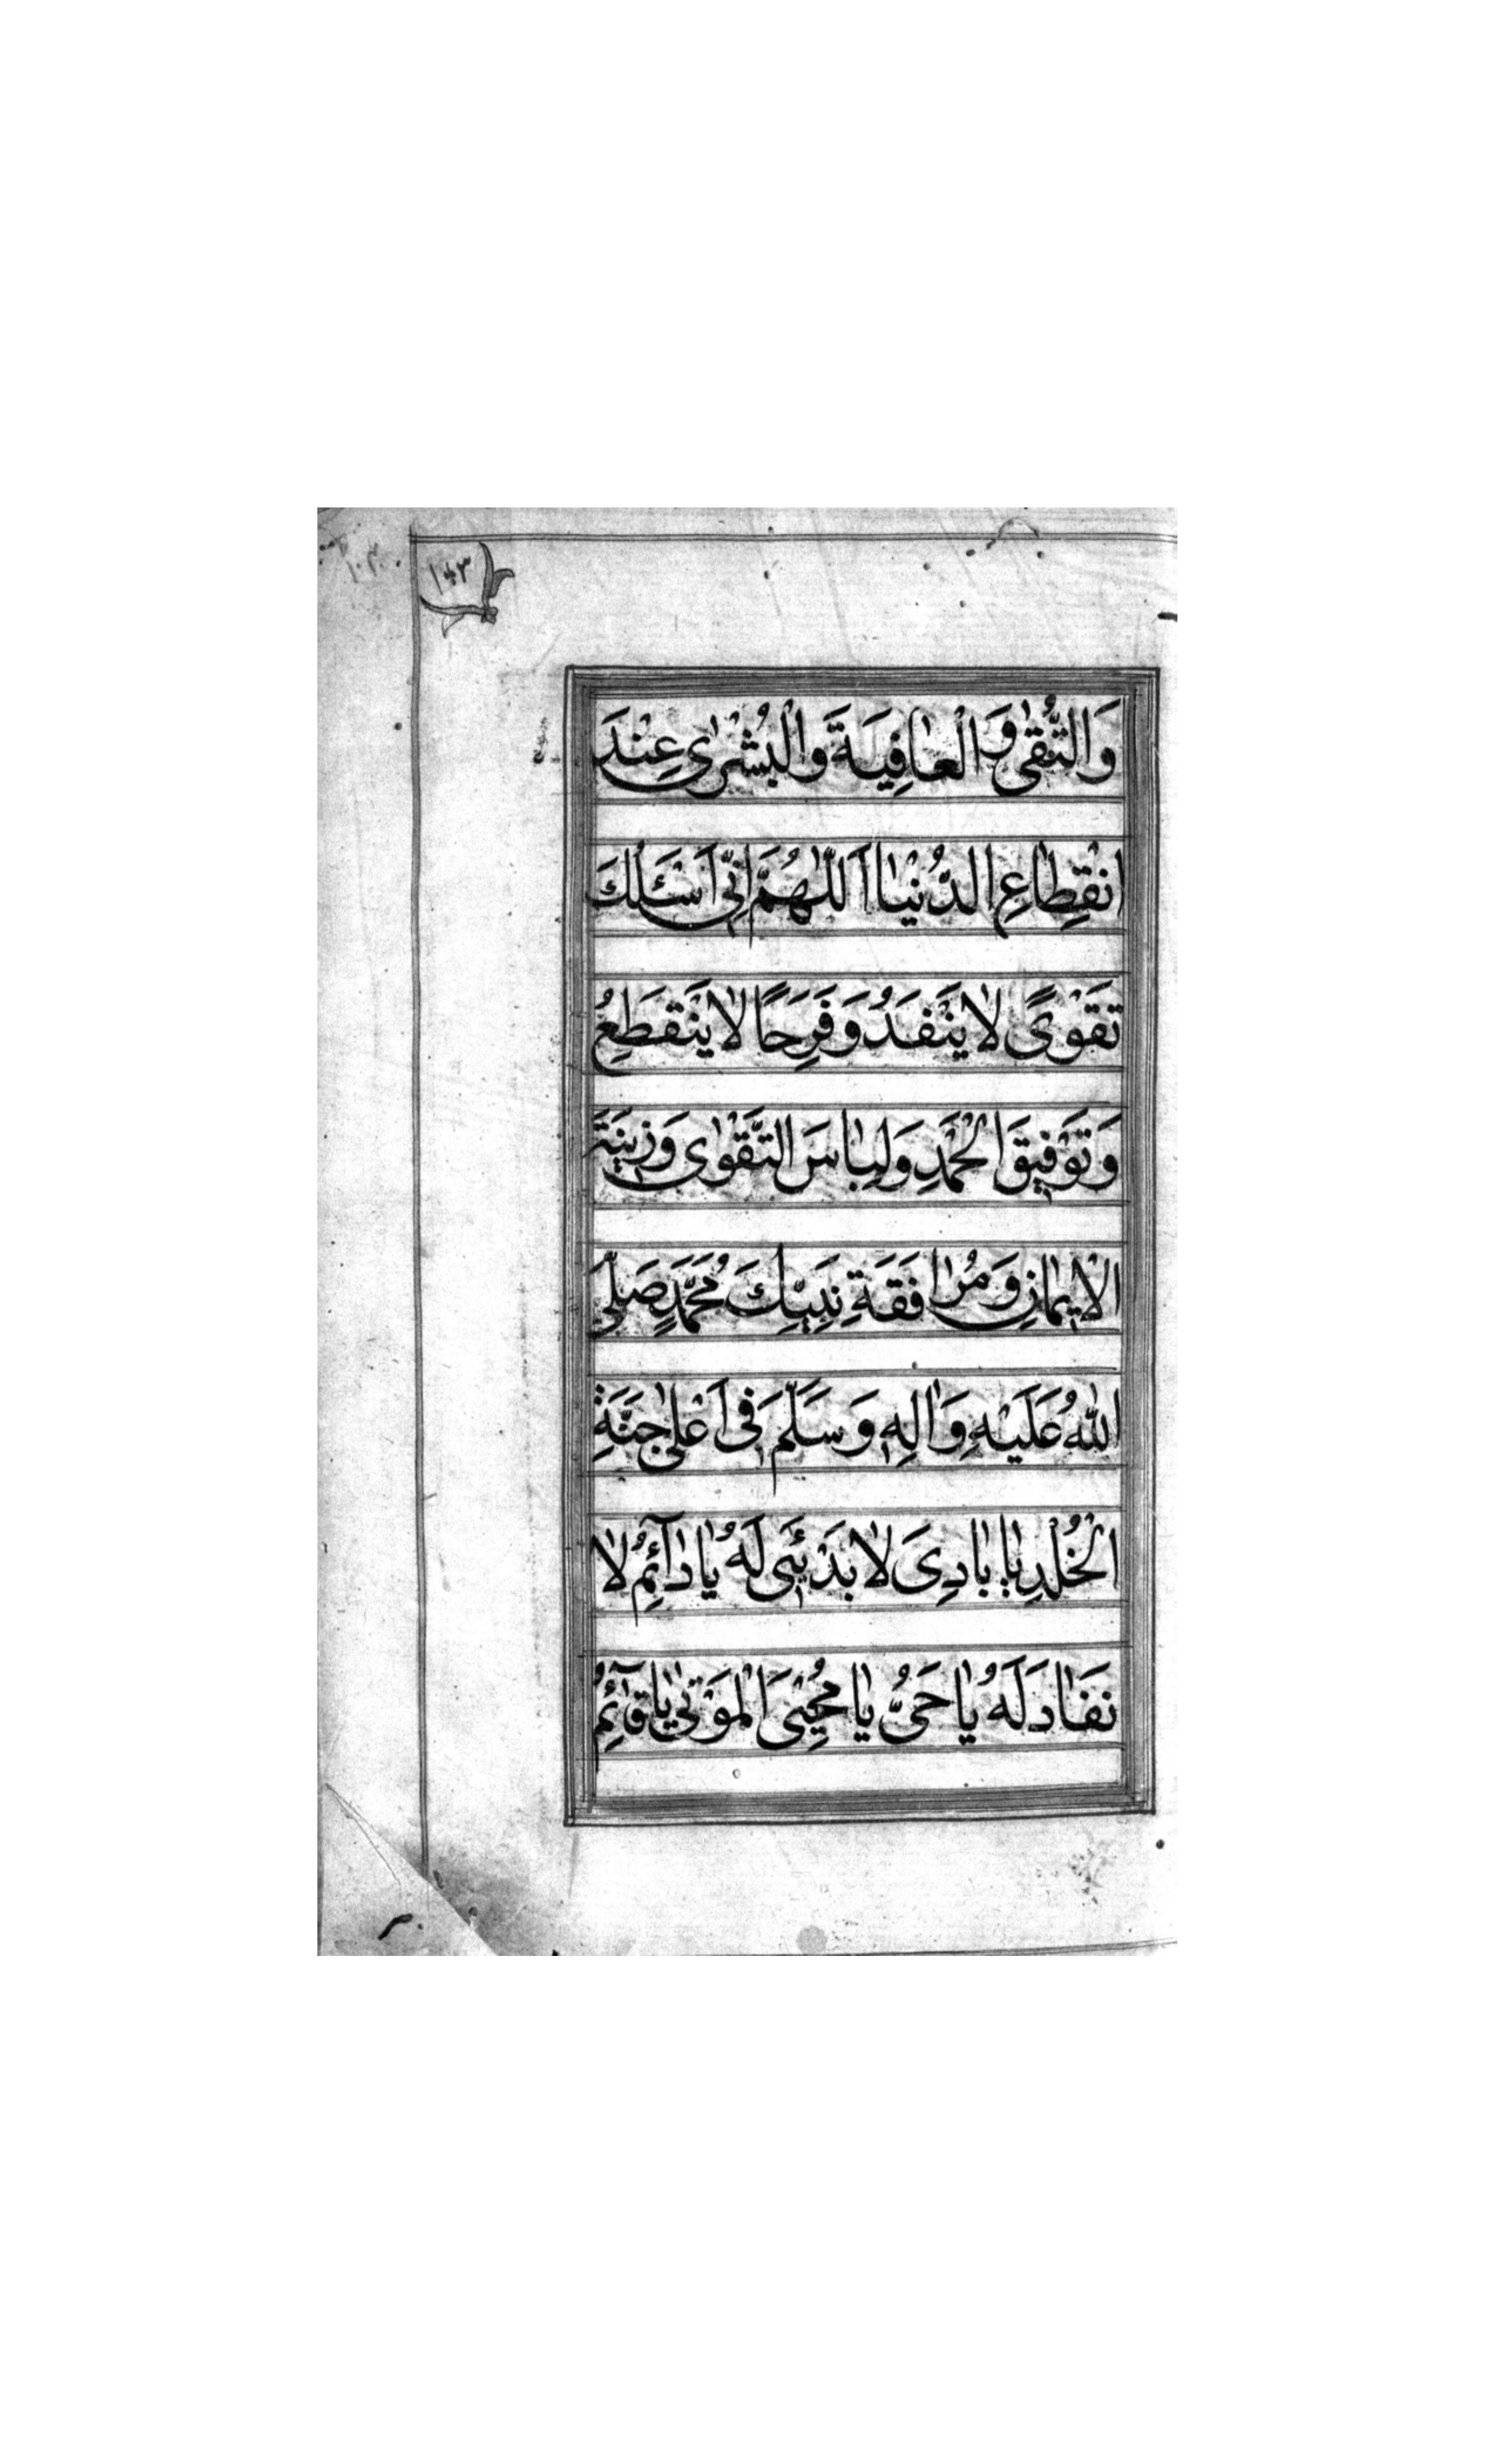 ١٤٣
وَالتُّقىٰ وَ الْعٰافِيَةَ وَالْبُشْرىٰ عِنْدَ
انْقِطٰاعِ الدُّنْيٰا اَللّٰهُمَّ اِنّٖى اَسْئَلُكَ
تَقْوًى لٰا يَنْفَدُ وَ فَرَحًا لٰا يَنْقَطِعُ
وَ تَوْفٖيقَ الْحَمْدِ وَ لِبٰاسَ التَّقْوٰى وَ زٖينَةَ
الْاٖيمٰانِ وَ مُرٰافَقَةِ نَبِيِّكَ مُحَمَّدٍ صَلَّى
اللّٰهُ عَلَيْهِ وَ اٰلِهٖ وَ سَلَّمَ فٖى اَعْلىٰ جَنَّةِ
الْخُلْدِ يٰا بٰادِىَ لٰا بَدْئٖىَ لَهُ يٰا دٰآئِمُ لٰا
نَفٰادَ لَهُ يٰا حَىُّ يٰا مُحْيِىَ الْمَوْتىٰ يٰا قٰآئِمُ